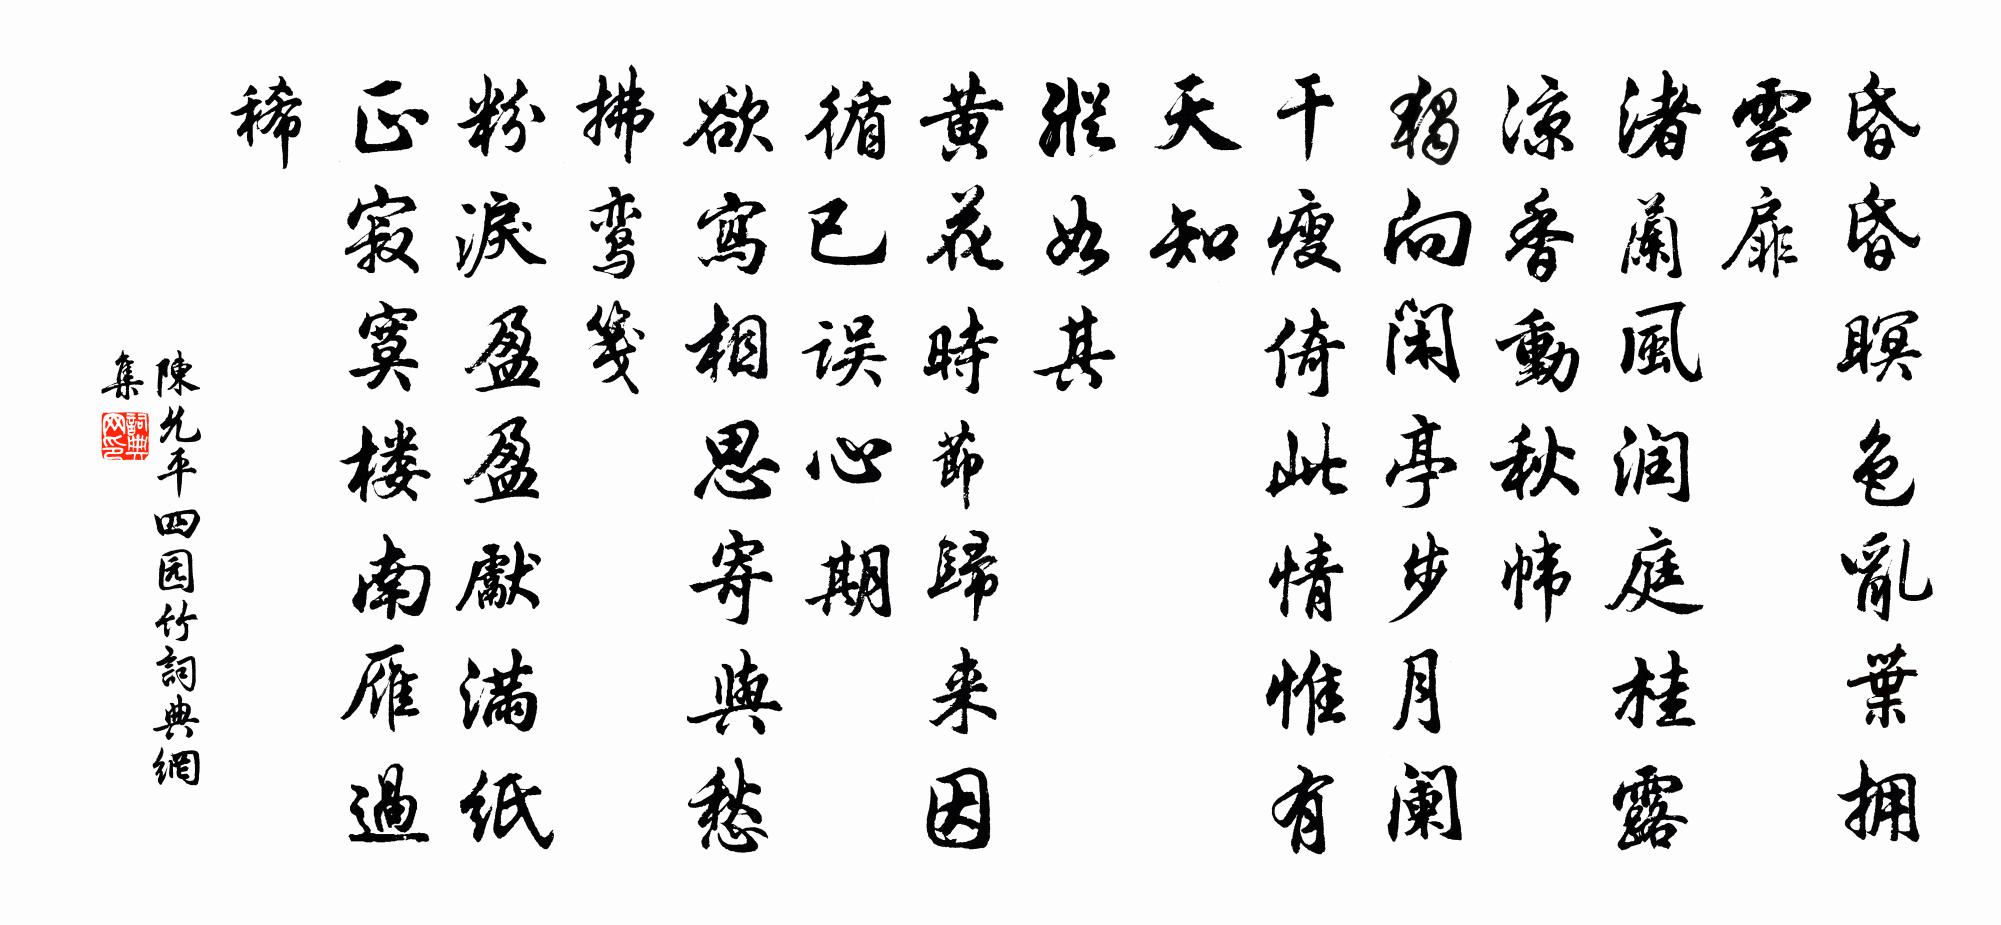 昏昏暝色亂葉拥
雲扉
渚蘭風润庭桂露
凉香動秋帏
獨向闲亭步月阑
干瘦倚此情惟有
天知
縱如其
黄花時節歸来因
循已误心期
欲寫相思寄與愁
拂鸾笺
粉淚盈盈獻满纸
正寂寞楼南雁過
稀
陳允平四园竹詞典網
集
詞典网印